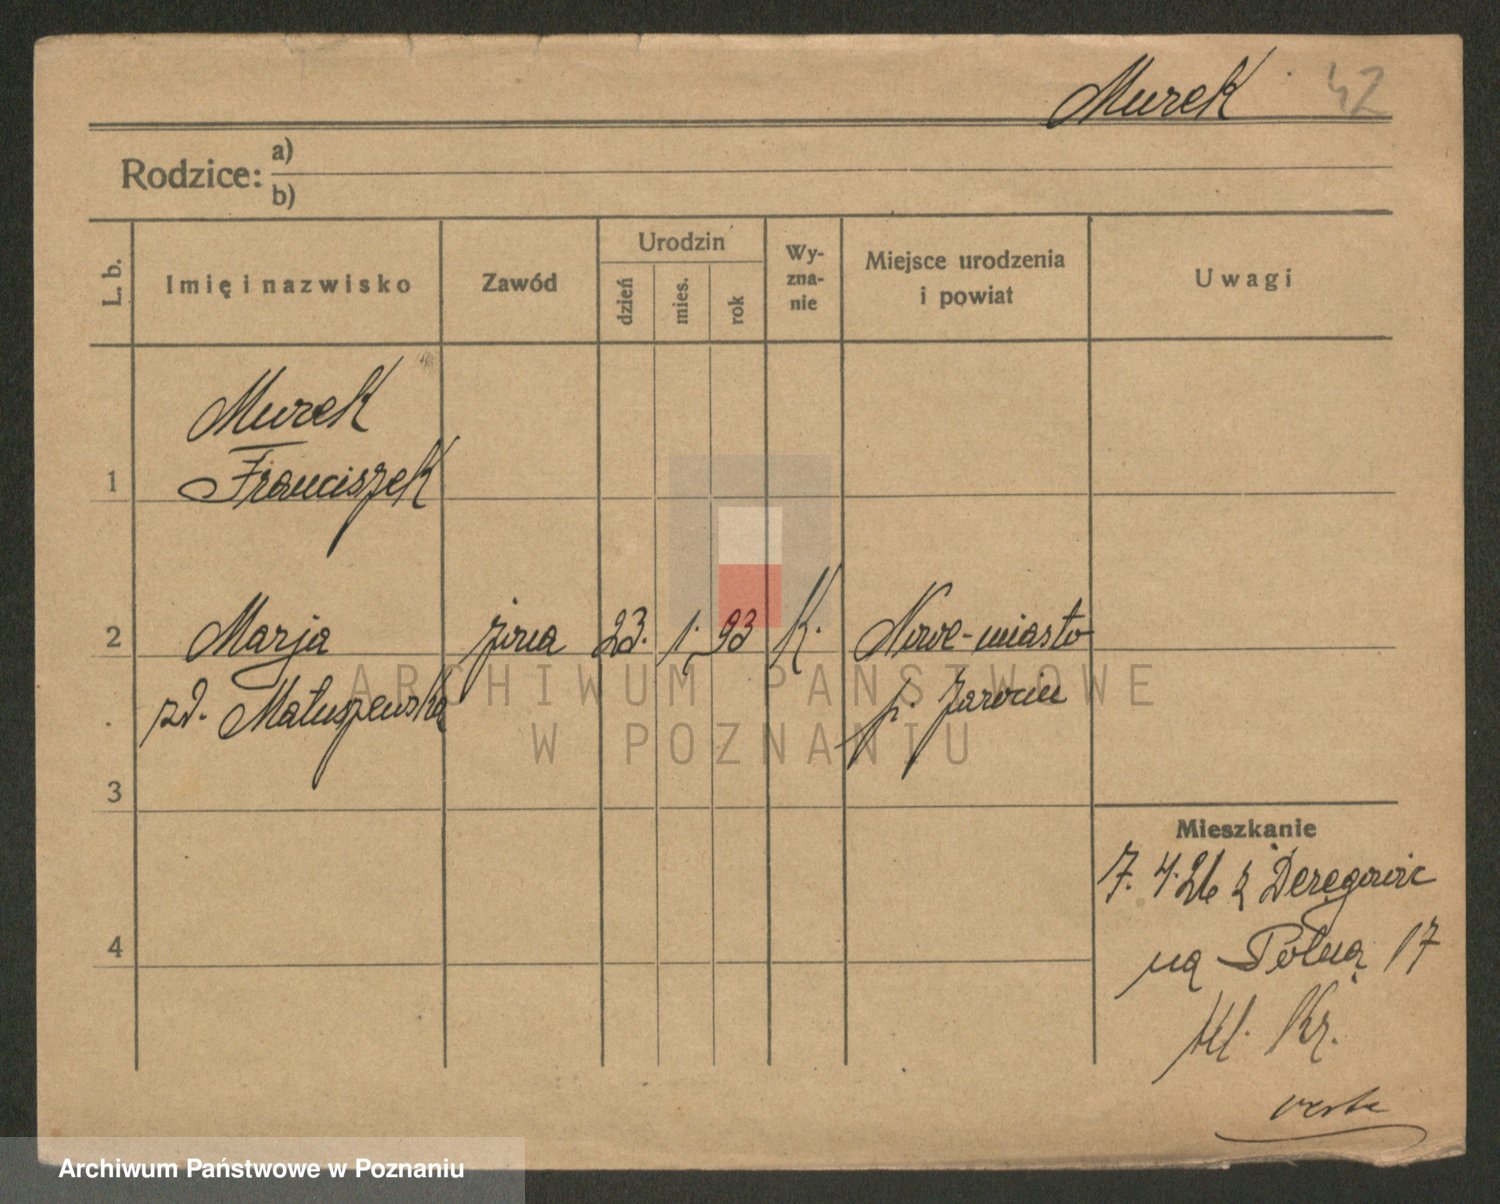 Murek 42
Rodzice: a)
b)
L. b.
Imię i nazwisko
Zawód
Urodzin
dzień
mies.
rok
Wy-
zna-
nie
Miejsce urodzenia
i powiat
Uwagi
Murek
1 Franciszek
2 Marja żona 23. 1. 93 K. Nowe-miasto
zd. Matuszewska p. Jarocin
3
4
Mieszkanie
7. 4. 26 z
na Polną 17
verte
ARCHIWUM PAŃSTWOWE
W POZNANIU
Archiwum Państwowe w Poznaniu